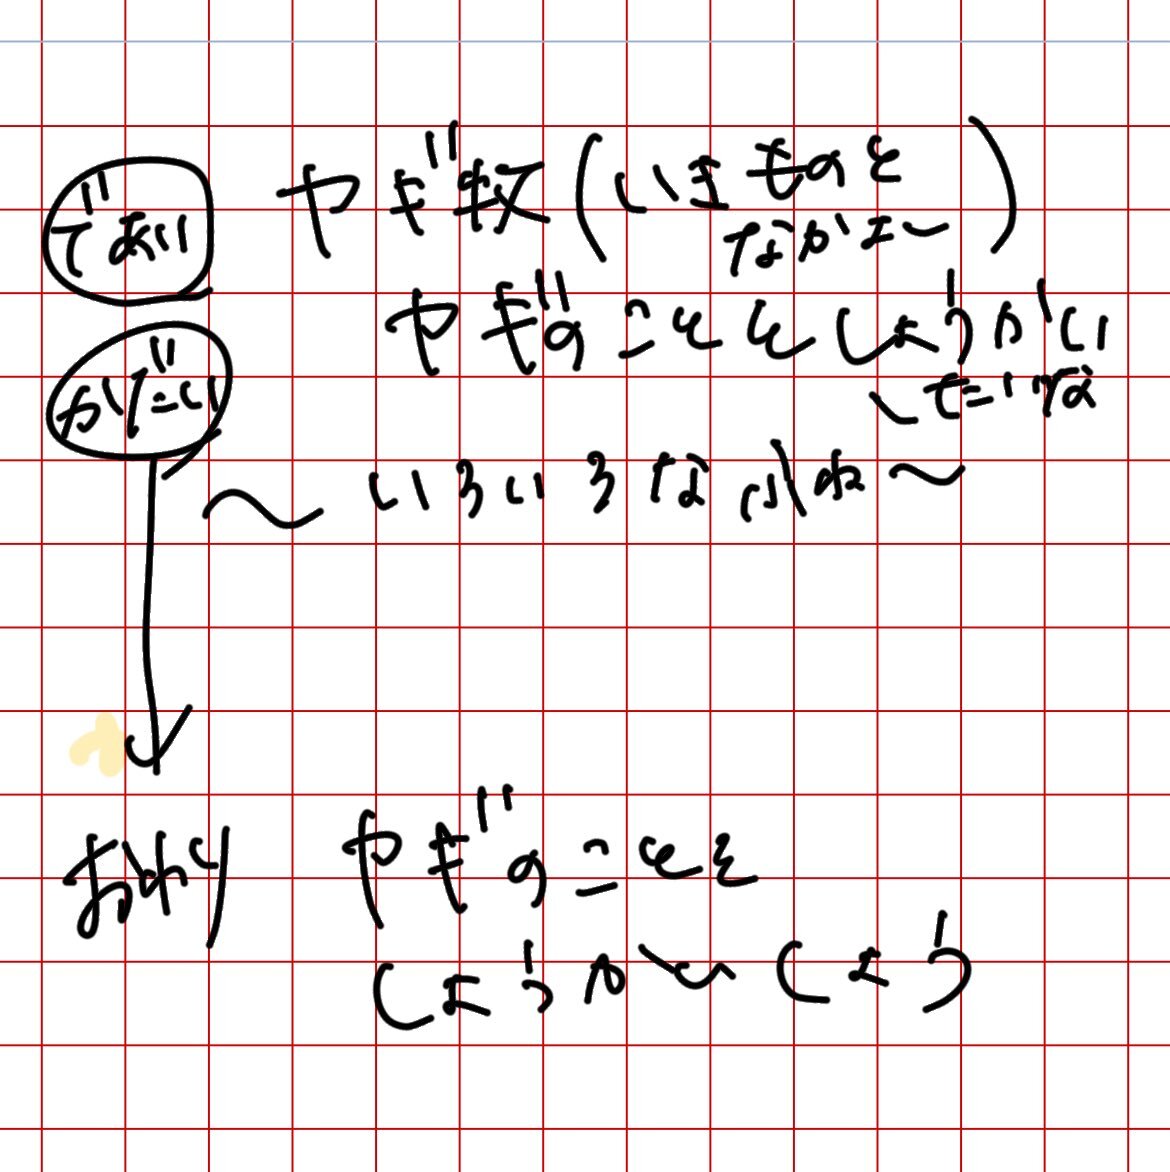 であい
ヤギ牧(いきものと
なかま〜)
やぎのことをしょうかい
したいな
かだい
〜いろいろなふね〜
おわり
やぎのことを
しょうかいしよう